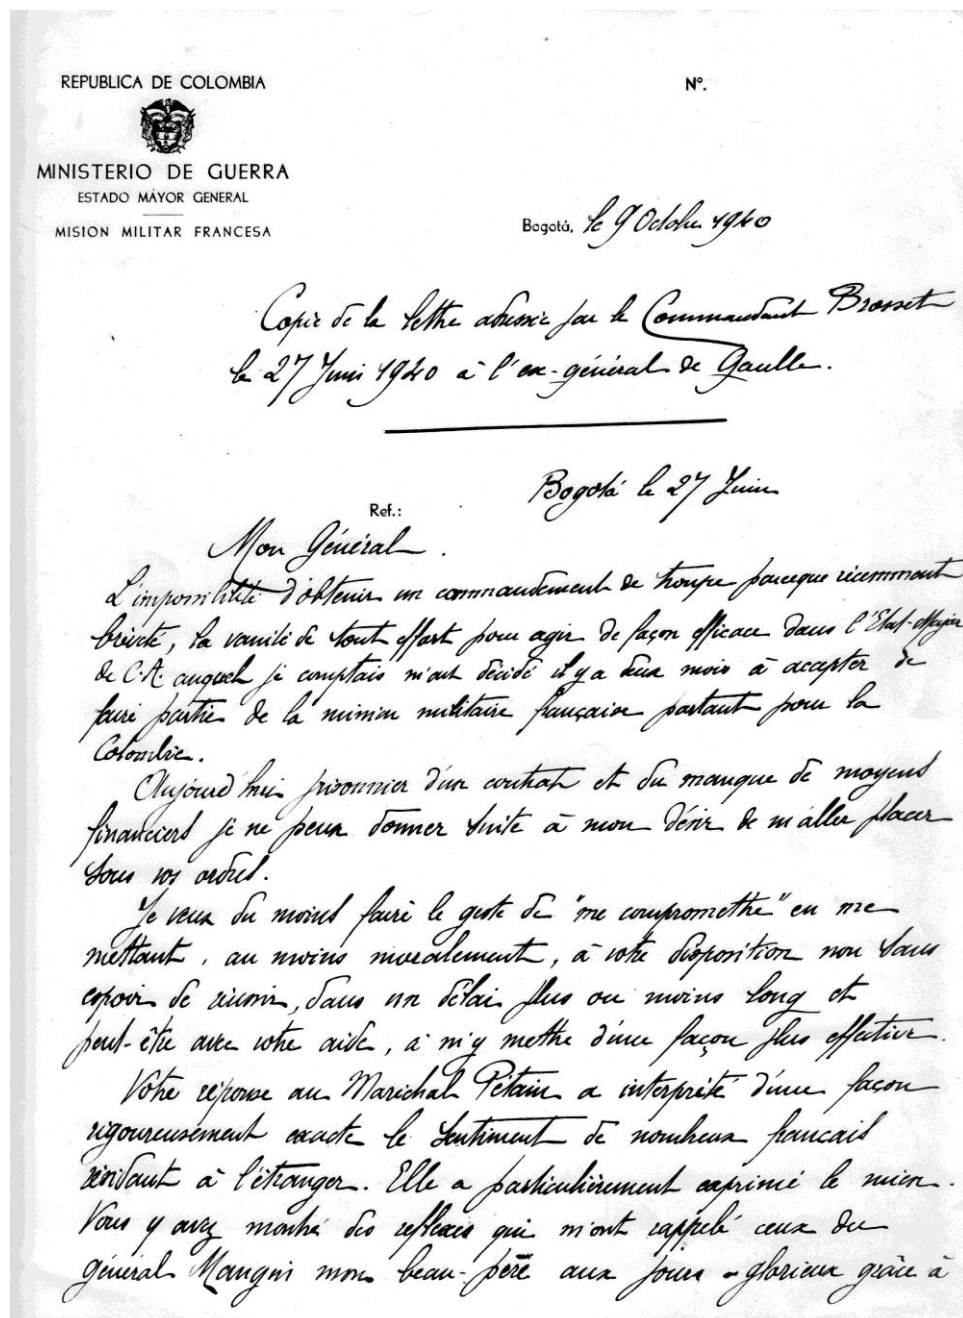 REPUBLICA DE COLOMBIA
Nº.
MINISTERIO DE GUERRA
ESTADO MAYOR GENERAL
MISION MILITAR FRANCESA
Bogotá, le 9 Octobre 1940
Copie de la lettre adressée par le Commandant Brosset
le 27 Juin 1940 à l'ex-général de Gaulle.
Bogotá le 27 Juin
Ref.:
Mon Général.
L'impossibilité d'obtenir un commandement de troupe parceque récemment
breveté, la vanité de tout effort pour agir de façon efficace dans l'Etat-Major
de C.A. auquel je comptais m'ont décidé il y a deux mois à accepter de
faire partie de la mission militaire française partant pour la
Colombie.
Aujourd'hui prisonnier d'un contrat et du manque de moyens
financiers je ne peux donner suite à mon désir de m'aller placer
sous vos ordres.
Je veux du moins faire le geste de "me compromettre" en me
mettant, au moins moralement, à votre disposition non sans
espoir de réussir, dans un délai plus ou moins long et
peut-être avec votre aide, à m'y mettre d'une façon plus effective.
Votre réponse au Maréchal Pétain a interprété d'une façon
rigoureusement exacte le sentiment de nombreux français
résidant à l'étranger. Elle a particulièrement exprimé le mien.
Vous y avez montré des reflexes qui m'ont rappelé ceux du
général Mangin mon beau-père aux jours glorieux grâce à